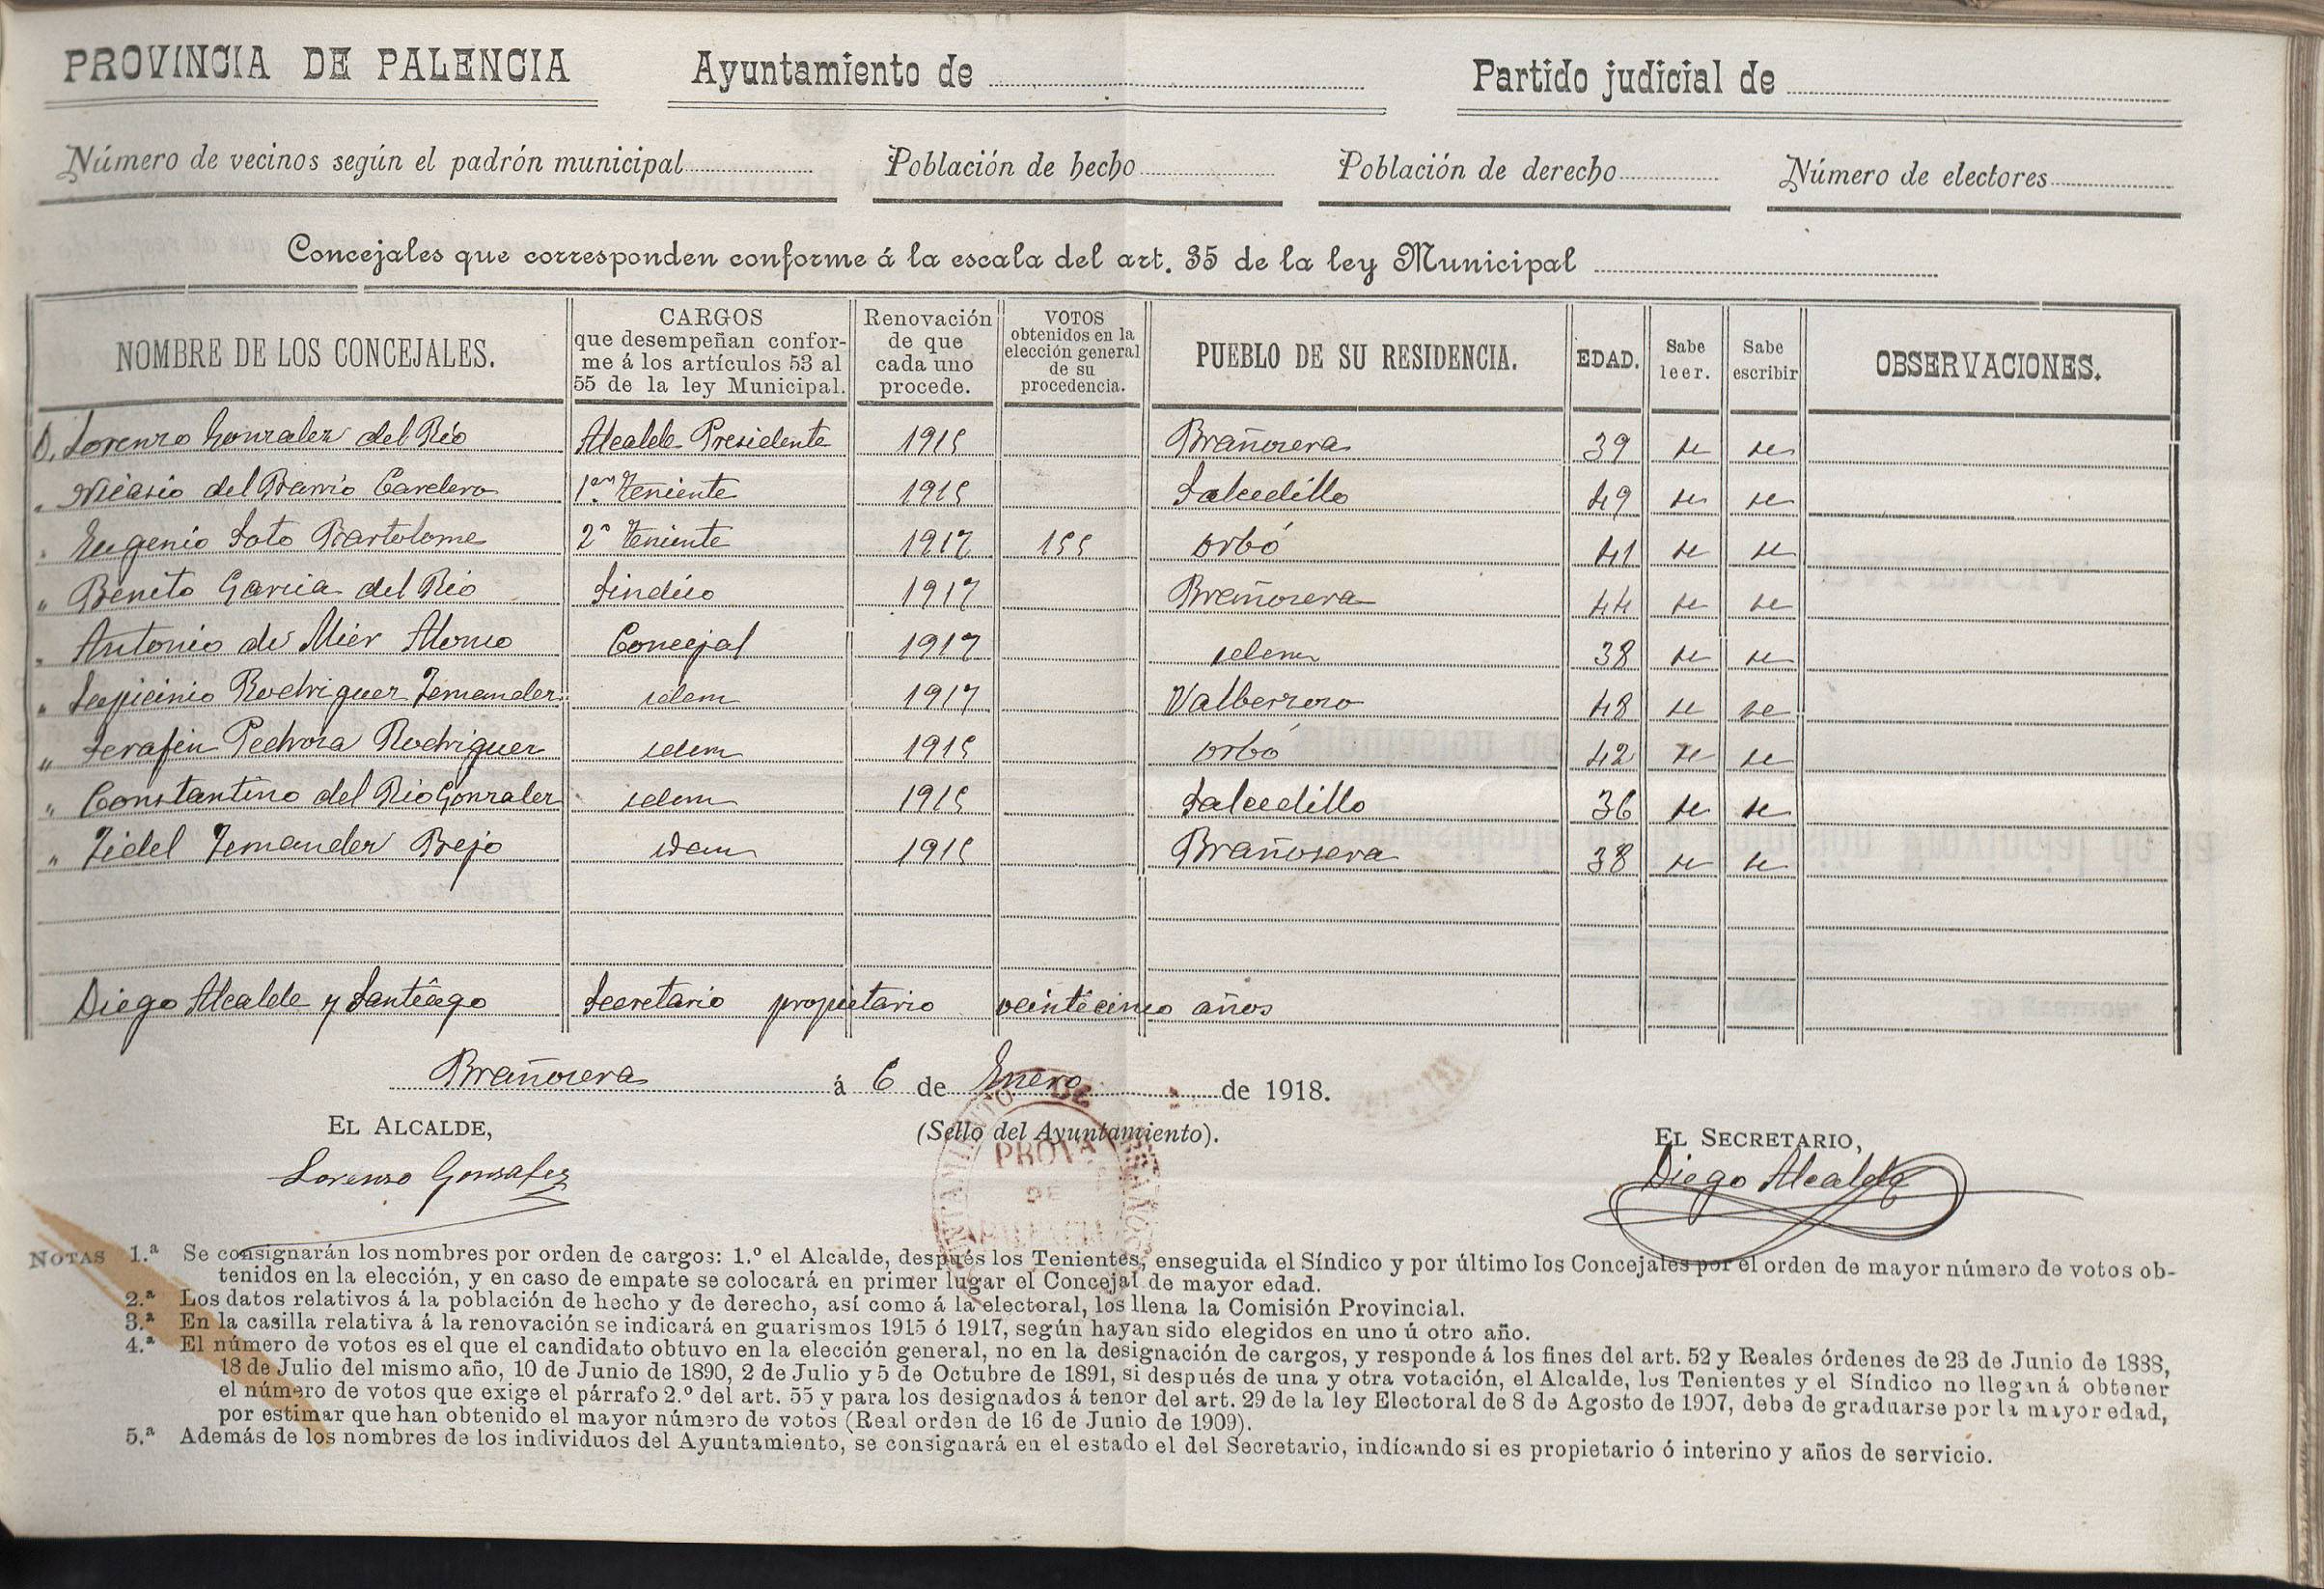 PROVINCIA DE PALENCIA Ayuntamiento de Partido judicial de
Número de vecinos según el padrón municipal Población de hecho Población de derecho Número de electores
Concejales que corresponden conforme á la escala del art. 35 de la ley Municipal
NOMBRE DE LOS CONCEJALES. CARGOS que desempeñan confor- me á los artículos 53 al 55 de la ley Municipal. Renovación de que cada uno procede. VOTOS obtenidos en la elección general de su procedencia. PUEBLO DE SU RESIDENCIA. EDAD. Sabe leer. Sabe escribir OBSERVACIONES.
D. Lorenzo Gonzalez del Rio Alcalde Presidente 1915 Brañosera 39 si si
" Nicasio del Barrio 1er Teniente 1915 Salcedillo 49 si si
" Eugenio Soto Bartolome 2º Teniente 1917 155 Orbó 41 si si
" Benito Garcia del Rio Sindico 1917 Brañosera 44 si si
" Antonio de Mier Alonso Concejal 1917 idem 38 si si
" Rodriguez Fernandez idem 1917 Valberzoso 48 si si
" Serafin Pedrosa Rodriguez idem 1915 Orbó 42 si si
" Constantino del Rio Gonzalez idem 1915 Salcedillo 36 si si
" Fidel Fernandez Brejo idem 1915 Brañosera 38 si si
Diego Alcalde y Santiago Secretario propietario veinticinco años
Brañosera á 6 de Enero de 1918.
EL ALCALDE, (Sello del Ayuntamiento). EL SECRETARIO,
Lorenzo Gonzalez PROVA DE Diego Alcalde
NOTAS 1.ª Se consignarán los nombres por orden de cargos: 1.º el Alcalde, después los Tenientes, enseguida el Síndico y por último los Concejales por el orden de mayor número de votos ob-
tenidos en la elección, y en caso de empate se colocará en primer lugar el Concejal de mayor edad.
2.ª Los datos relativos á la población de hecho y de derecho, así como á la electoral, los llena la Comisión Provincial.
3.ª En la casilla relativa á la renovación se indicará en guarismos 1915 ó 1917, según hayan sido elegidos en uno ú otro año.
4.ª El número de votos es el que el candidato obtuvo en la elección general, no en la designación de cargos, y responde á los fines del art. 52 y Reales órdenes de 23 de Junio de 1888,
18 de Julio del mismo año, 10 de Junio de 1890, 2 de Julio y 5 de Octubre de 1891, si después de una y otra votación, el Alcalde, los Tenientes y el Síndico no llegan á obtener
el número de votos que exige el párrafo 2.º del art. 55 y para los designados á tenor del art. 29 de la ley Electoral de 8 de Agosto de 1907, debe de graduarse por la mayor edad,
por estimar que han obtenido el mayor número de votos (Real orden de 16 de Junio de 1909).
5.ª Además de los nombres de los individuos del Ayuntamiento, se consignará en el estado el del Secretario, indicando si es propietario ó interino y años de servicio.